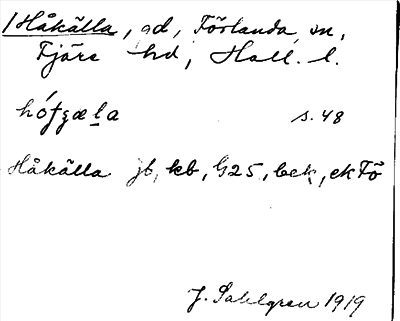 /Håkälla, gd, Förlanda sn,
Fjäre hd, Hall. l.
s. 48
Håkälla jb, kb, G25, bek, ekFö
J. Sahlgren 1919